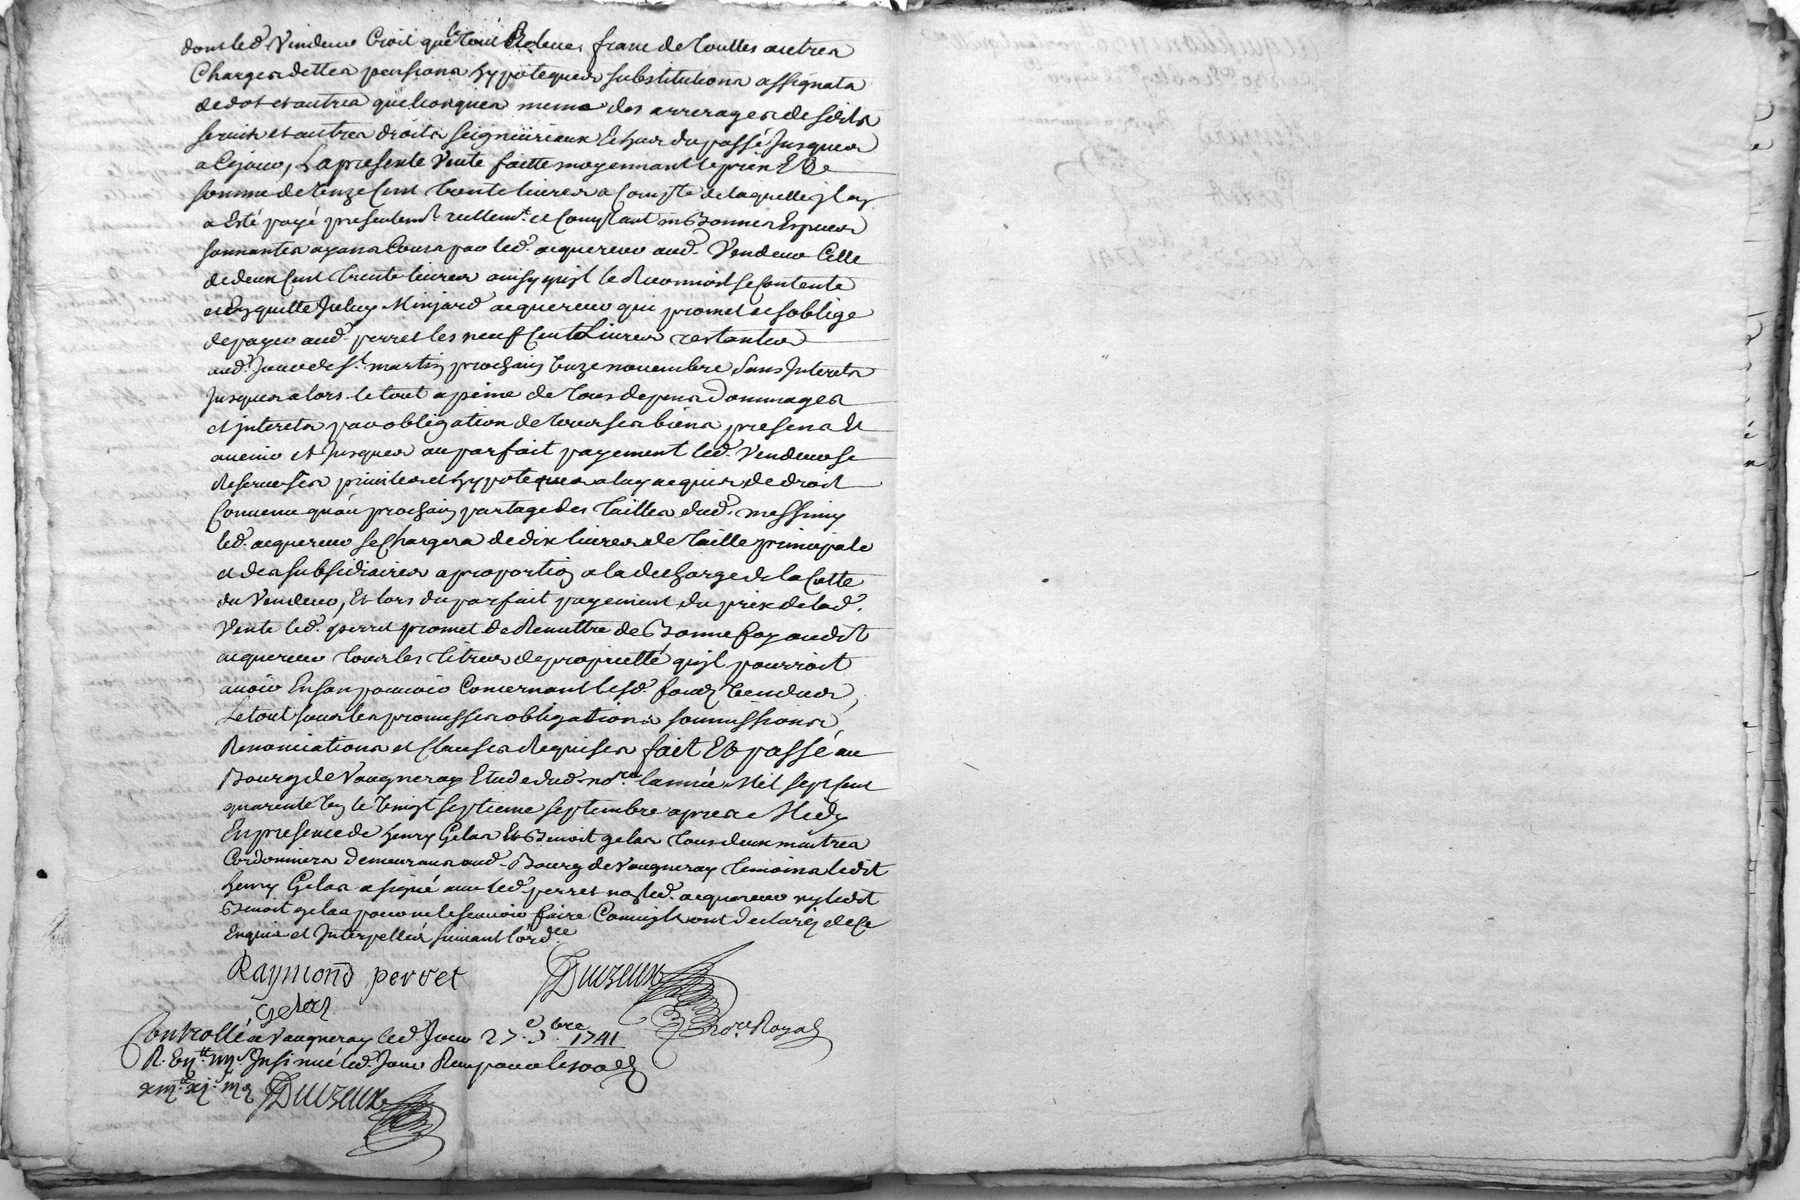 dont led. Vendeur Croit que le tout Releve, franc de touttes autres
Charges dettes pensions hypoteques substitutions assignats
de dot et autres quelconques meme des arrerages desdits
servis et autres droits seigneuriaux Echus du passé Jusques
a Cejour, La presente Vente faitte moyennant le prix Et
somme de onze Cent trente livres a Compte de laquelle il luy
a Esté payé presentemt. reellemt. et Comptant en Bonnes Especes
sonnantes ayans Cours par led. acquereur aud. Vendeur Celle
de deux Cent trente livres ainsy qu'il le Reconnoit se Contente
et En quitte Minjard acquereur qui promet et s'oblige
de payer aud. perret les neuf Cent Livres restantes
aud. Jour de St. martin prochain onze novembre Sans Interets
Jusques alors le tout a peine de tous depens Dommages
et interets par obligation de tous ses biens presens et
avenir et Jusques au parfait payement led. Vendeur se
Reserve ses privileges et hypoteques a luy acquis de droit
Convenu qu'au prochain partage des tailles dud. messimy
led. acquereur se Chargera de dix livres de taille principale
et des subsidiaires a proportion a la decharge de la Cotte
du Vendeur, Et lors du parfait payement du prix de lad.
Vente led. perret promet de Remettre de Bonne foy audit
acquereur tous les titres de proprietté qu'il pourroit
avoir En son pouvoir Concernant lesd. fonds Vendus,
Le tout sous les promesses obligations soumissions
Renonciations et Clauses Requises fait Et passé au
Bourg de Vaugneray Etude dud. nore. l'année Mil sept cent
quarente Un le Vingt septieme septembre apres Midy
En presence de henry Gelas Et Benoit gelas tous deux maitres
Cordonniers Demeurans aud. Bourg de Vaugneray temoins ledit
henry Gelas a signé avec led. perret non led. acquereur ny ledit
Benoit gelas pour ne le scavoir faire Comm'ils ont declaré de Ce
Enquis et Interpellés suivant l'ordce.
Raymond perret
Gelas
Nore. Royal
Controllé a Vaugneray led. Jour 27e. 7bre. 1741
Insinué led. Jour Reçu pour le 100e